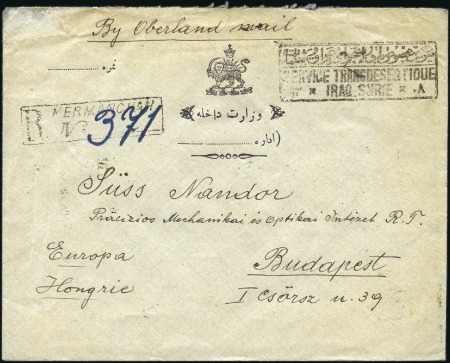 By Oberland mail
نمره
SERVICE TRANSDESERTIQUE
IRAQ SYRIE
R KERMANCHAH
N° 371
وزارت داخله
اداره
Süss Nandor
Präcizios Mechanikai és Optikai Intézet R. T.
Europa
Budapest
Hongrie
I Csörsz u. 39